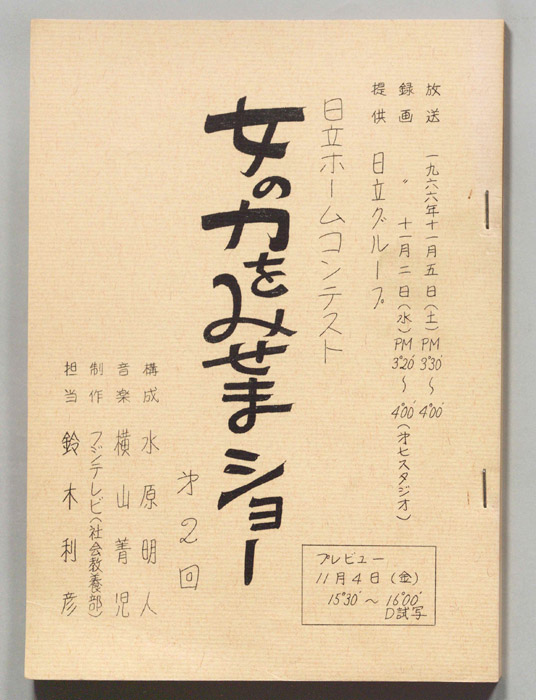 放送 一九六六年十一月五日(土)PM3°30'〜4°00'
録画 〃 十一月二日(水)PM3°20'〜4°00'(オ七スタジオ)
提供 日立グループ
日立ホームコンテスト
女の力をみせまショー
オ2回
構成 水原明人
音楽 横山菁児
制作 フジテレビ(社会教養部)
担当 鈴木利彦
プレビュー
11月4日(金)
15°30'〜16°00'
D試写